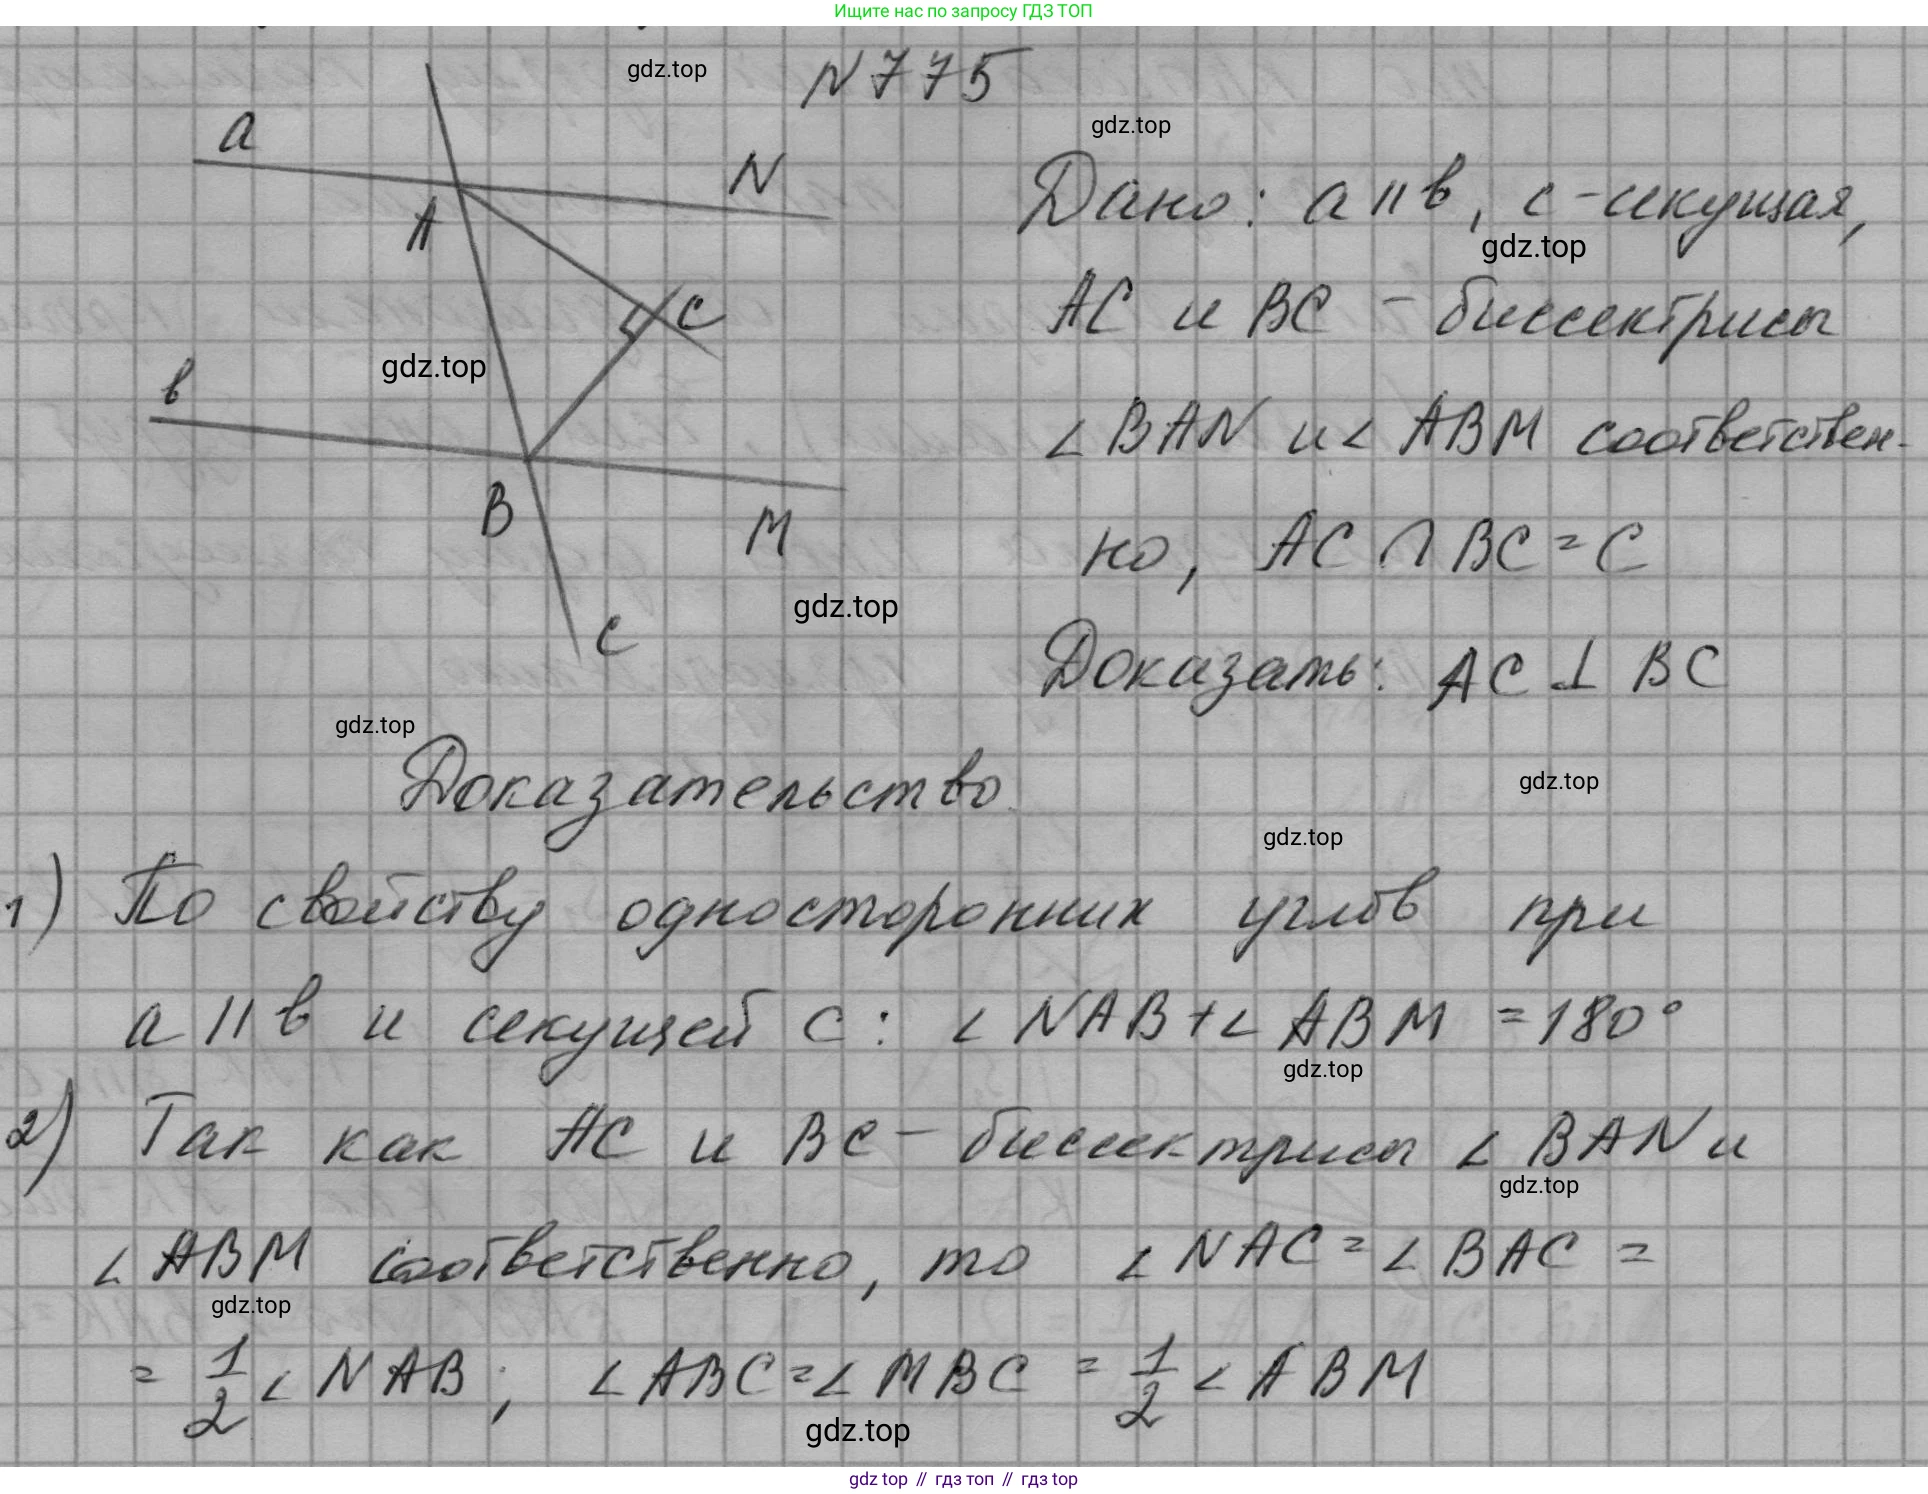 Ищите нас по запросу ГДЗ ТОП
N 775
gdz.top
gdz.top
a
N
A
C
в
B
M
c
gdz.top
gdz.top
Дано: a || в, c - секущая,
gdz.top
AC и BC - биссектрисы
∠ BAN и ∠ ABM соответствен-
но, AC ∩ BC = C
Доказать: AC ⊥ BC
gdz.top
Доказательство
gdz.top
gdz.top
1) По свойству односторонних углов при
a || в и секущей c: ∠ NAB + ∠ ABM = 180°
gdz.top
2) Так как AC и BC - биссектрисы ∠ BAN и
gdz.top
∠ ABM соответственно, то ∠ NAC = ∠ BAC =
gdz.top
= 1/2 ∠ NAB; ∠ ABC = ∠ MBC = 1/2 ∠ ABM
gdz.top
gdz top // гдз топ // гдз top